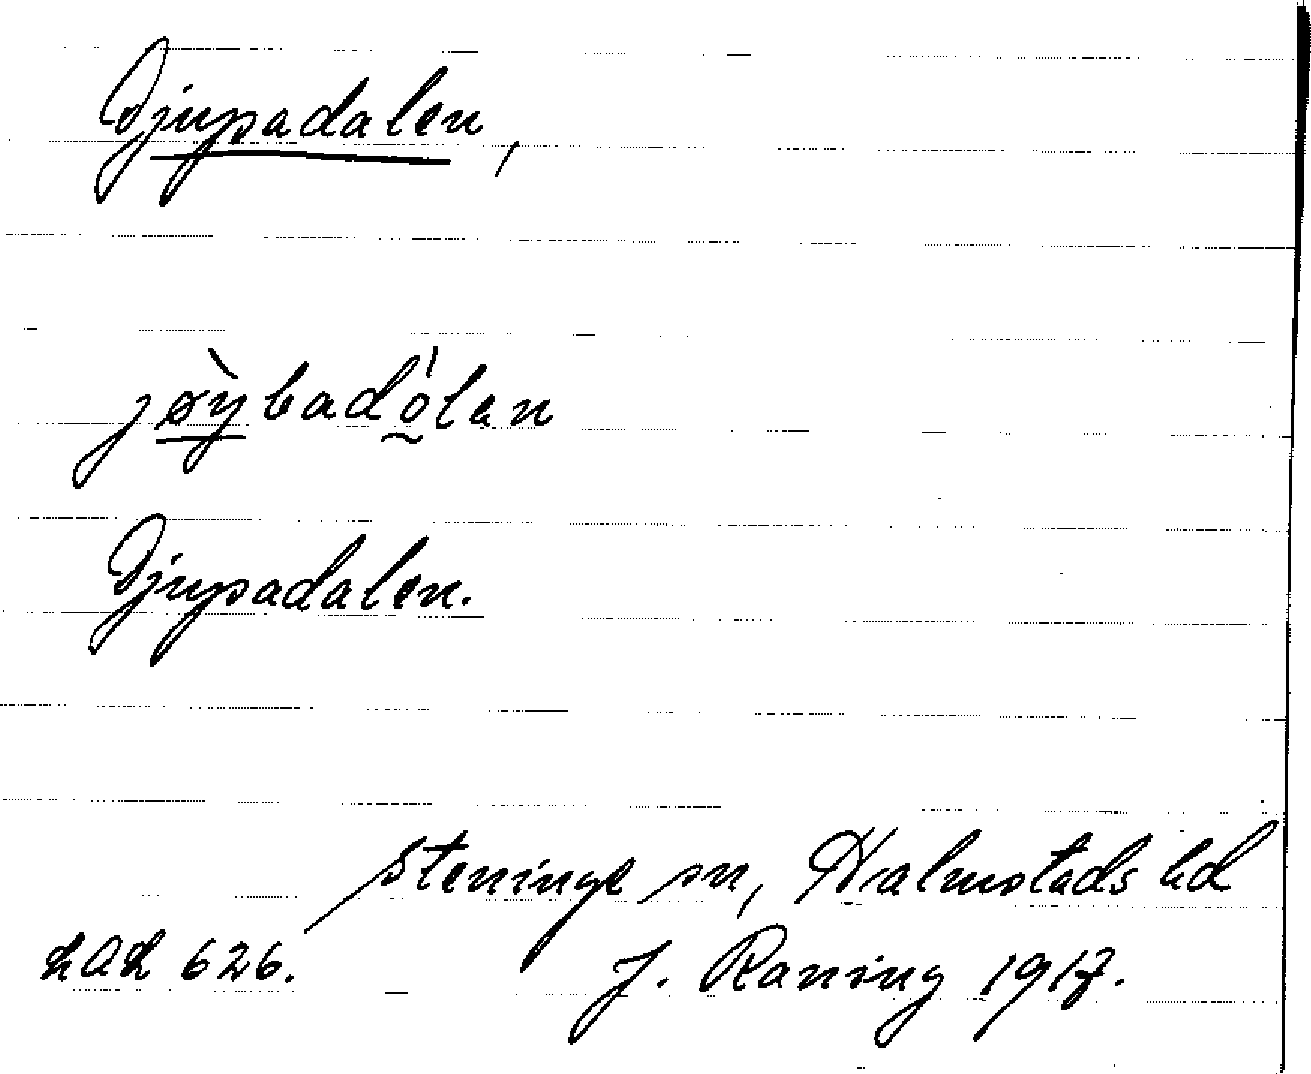 Djupadalen,
jøỳbadólan
Djupadalen.
Steninge sn, Halmstads hd
LAL 626. J. Raning 1917.